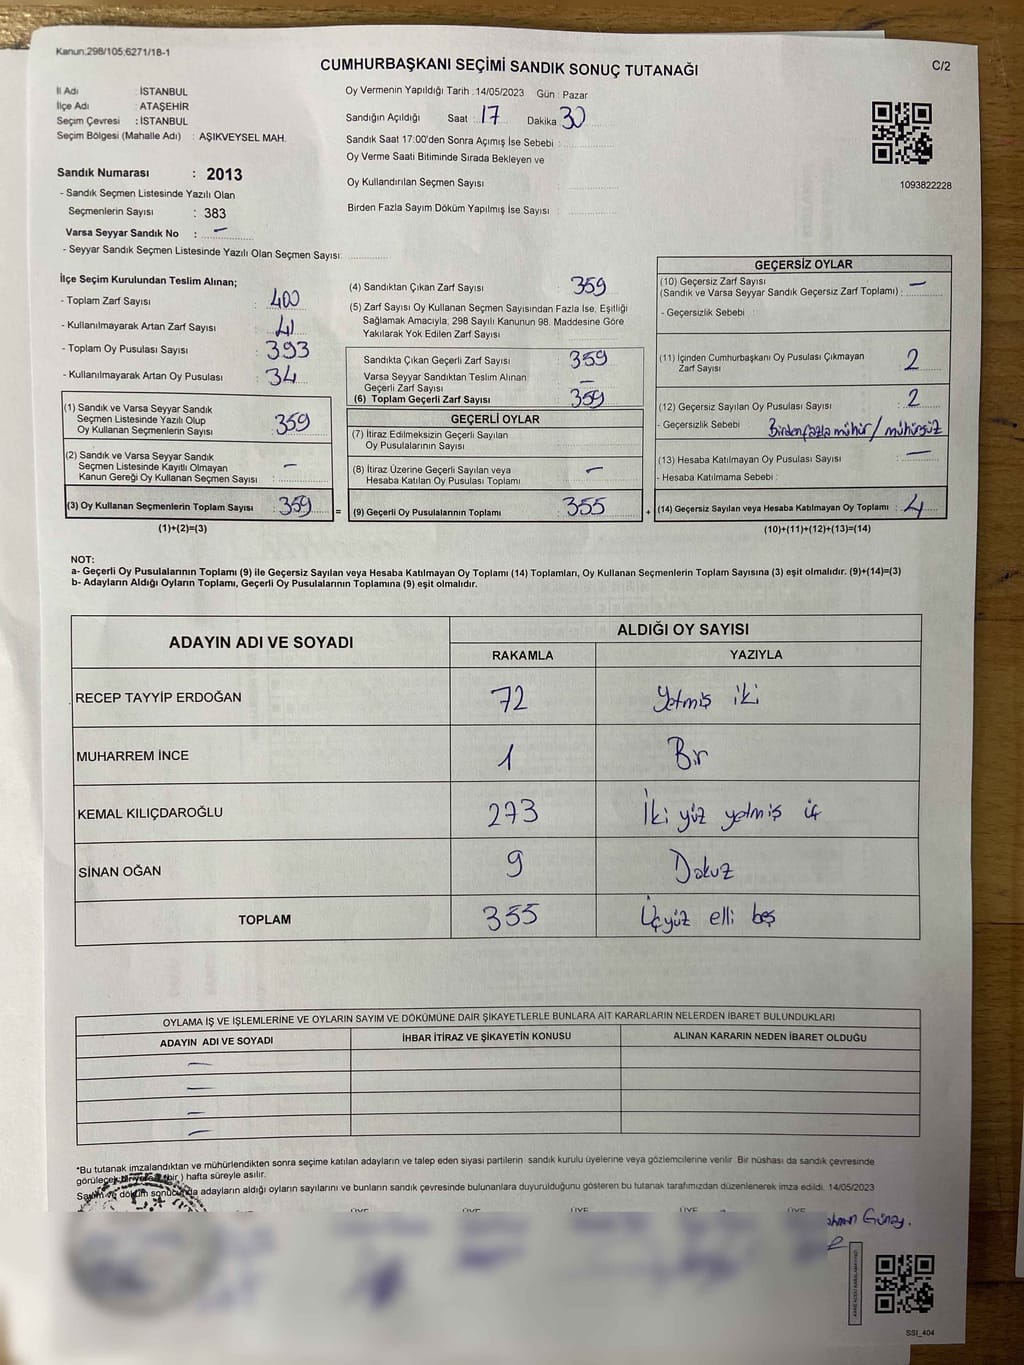 Kanun;298/105;6271/18-1
CUMHURBAŞKANI SEÇİMİ SANDIK SONUÇ TUTANAĞI
C/2
İl Adı : İSTANBUL
İlçe Adı : ATAŞEHİR
Seçim Çevresi : İSTANBUL
Seçim Bölgesi (Mahalle Adı) : AŞIKVEYSEL MAH.
Oy Vermenin Yapıldığı Tarih : 14/05/2023 Gün : Pazar
Sandığın Açıldığı Saat : 17 Dakika 30
Sandık Saat 17:00'den Sonra Açımış İse Sebebi :
Oy Verme Saati Bitiminde Sırada Bekleyen ve
Oy Kullandırılan Seçmen Sayısı :
Birden Fazla Sayım Döküm Yapılmış İse Sayısı :
1093822228
Sandık Numarası : 2013
- Sandık Seçmen Listesinde Yazılı Olan
Seçmenlerin Sayısı : 383
Varsa Seyyar Sandık No : -
- Seyyar Sandık Seçmen Listesinde Yazılı Olan Seçmen Sayısı:
İlçe Seçim Kurulundan Teslim Alınan;
- Toplam Zarf Sayısı : 400
- Kullanılmayarak Artan Zarf Sayısı : 41
- Toplam Oy Pusulası Sayısı : 393
- Kullanılmayarak Artan Oy Pusulası : 34
(1) Sandık ve Varsa Seyyar Sandık
Seçmen Listesinde Yazılı Olup
Oy Kullanan Seçmenlerin Sayısı : 359
(2) Sandık ve Varsa Seyyar Sandık
Seçmen Listesinde Kayıtlı Olmayan
Kanun Gereği Oy Kullanan Seçmen Sayısı : -
(3) Oy Kullanan Seçmenlerin Toplam Sayısı : 359 =
(1)+(2)=(3)
(4) Sandıktan Çıkan Zarf Sayısı : 359
(5) Zarf Sayısı Oy Kullanan Seçmen Sayısından Fazla İse, Eşitliği
Sağlamak Amacıyla, 298 Sayılı Kanunun 98. Maddesine Göre
Yakılarak Yok Edilen Zarf Sayısı :
Sandıkta Çıkan Geçerli Zarf Sayısı : 359
Varsa Seyyar Sandıktan Teslim Alınan
Geçerli Zarf Sayısı : -
(6) Toplam Geçerli Zarf Sayısı : 359
GEÇERLİ OYLAR
(7) İtiraz Edilmeksizin Geçerli Sayılan
Oy Pusulalarının Sayısı :
(8) İtiraz Üzerine Geçerli Sayılan veya
Hesaba Katılan Oy Pusulası Toplamı : -
(9) Geçerli Oy Pusulalarının Toplamı : 355 +
GEÇERSİZ OYLAR
(10) Geçersiz Zarf Sayısı
(Sandık ve Varsa Seyyar Sandık Geçersiz Zarf Toplamı) : -
- Geçersizlik Sebebi :
(11) İçinden Cumhurbaşkanı Oy Pusulası Çıkmayan
Zarf Sayısı : 2
(12) Geçersiz Sayılan Oy Pusulası Sayısı : 2
- Geçersizlik Sebebi : Birden fazla mühür / mühürsüz
(13) Hesaba Katılmayan Oy Pusulası Sayısı : -
- Hesaba Katılmama Sebebi :
(14) Geçersiz Sayılan veya Hesaba Katılmayan Oy Toplamı : 4
(10)+(11)+(12)+(13)=(14)
NOT:
a- Geçerli Oy Pusulalarının Toplamı (9) ile Geçersiz Sayılan veya Hesaba Katılmayan Oy Toplamı (14) Toplamları, Oy Kullanan Seçmenlerin Toplam Sayısına (3) eşit olmalıdır. (9)+(14)=(3)
b- Adayların Aldığı Oyların Toplamı, Geçerli Oy Pusulalarının Toplamına (9) eşit olmalıdır.
ADAYIN ADI VE SOYADI ALDIĞI OY SAYISI
RAKAMLA YAZIYLA
RECEP TAYYİP ERDOĞAN 72 Yetmiş iki
MUHARREM İNCE 1 Bir
KEMAL KILIÇDAROĞLU 273 İki yüz yetmiş üç
SİNAN OĞAN 9 Dokuz
TOPLAM 355 Üçyüz elli beş
OYLAMA İŞ VE İŞLEMLERİNE VE OYLARIN SAYIM VE DÖKÜMÜNE DAİR ŞİKAYETLERLE BUNLARA AİT KARARLARIN NELERDEN İBARET BULUNDUKLARI
ADAYIN ADI VE SOYADI İHBAR İTİRAZ VE ŞİKAYETİN KONUSU ALINAN KARARIN NEDEN İBARET OLDUĞU
-
-
-
-
*Bu tutanak imzalandıktan ve mühürlendikten sonra seçime katılan adayların ve talep eden siyasi partilerin sandık kurulu üyelerine veya gözlemcilerine verilir. Bir nüshası da sandık çevresinde
görülecek bir yere (bir) hafta süreyle asılır.
Sayım ve döküm sonucunda adayların aldığı oyların sayılarını ve bunların sandık çevresinde bulunanlara duyurulduğunu gösteren bu tutanak tarafımızdan düzenlenerek imza edildi. 14/05/2023
ÜYE ÜYE ÜYE ÜYE ÜYE
Günay.
SSI_404